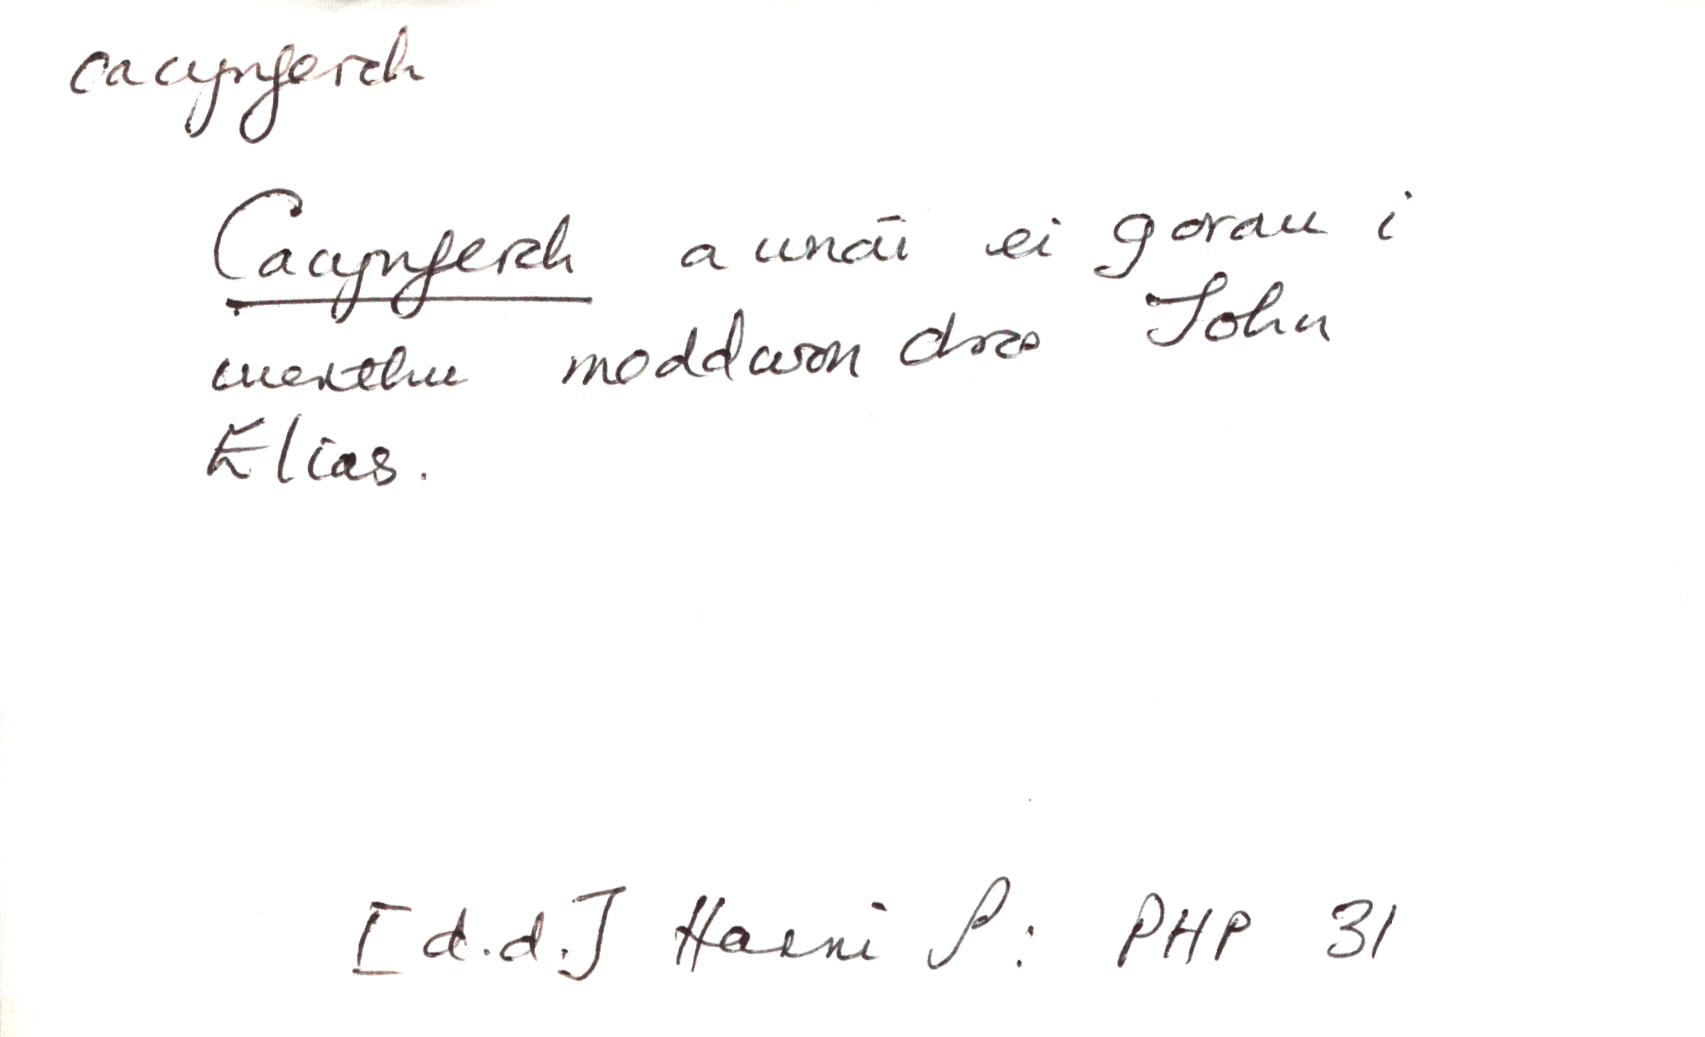 cacynferch
Cacynferch a wnâi ei gorau i
werthu moddion dros John
Elias.
[d.d.] Harri P: PHP 31